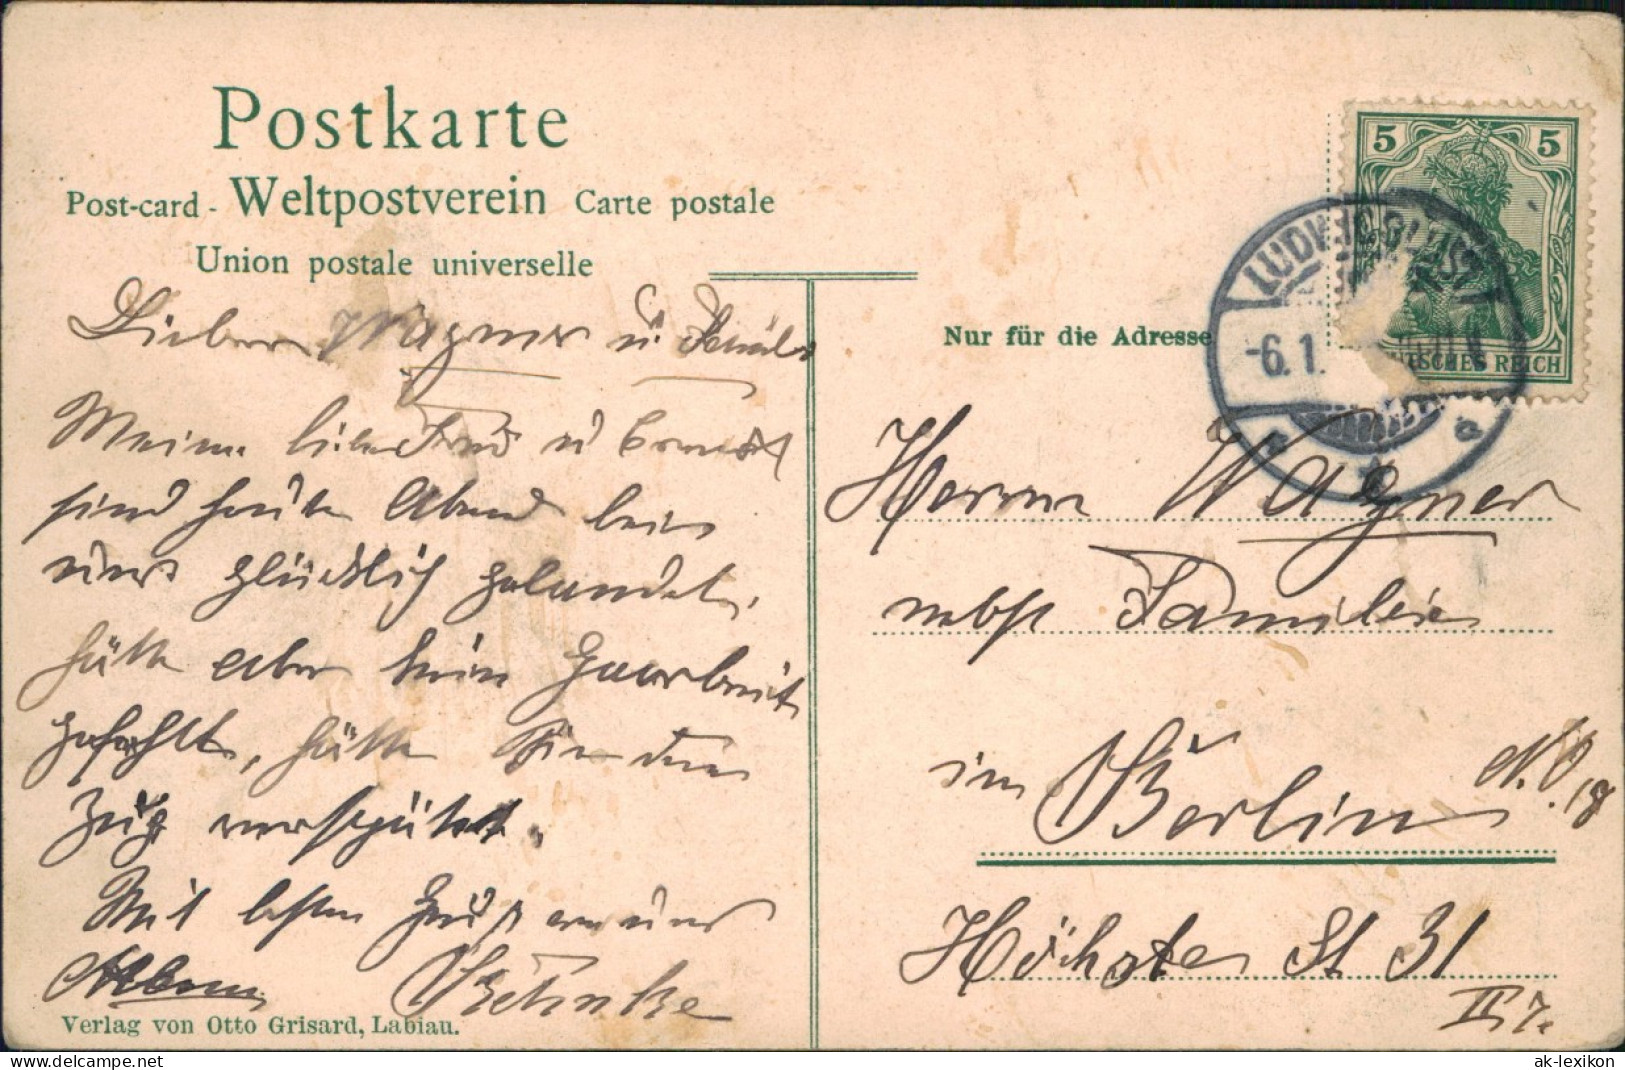 Postkarte
Post-card - Weltpostverein Carte postale
Union postale universelle
Lieber Wagner u
Meine liebe Frau u
sind heute Abend bei
uns glücklich gelandet,
hätte aber kein Haarbreit
gefehlt, hätte Sie den
Zug verspätet.
Mit besten Gruß an
Verlag von Otto Grisard, Labiau.
5 5
DEUTSCHES REICH
LUDWIGSLUST
-6.1.
Nur für die Adresse
Herrn Wagner
nebst Familie
in Berlin N.O. 18
Höchste St 31
II 7.
ak-lexikon